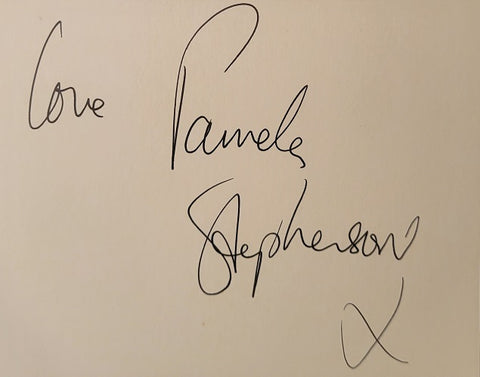 Love Pamela
Stephenson
X